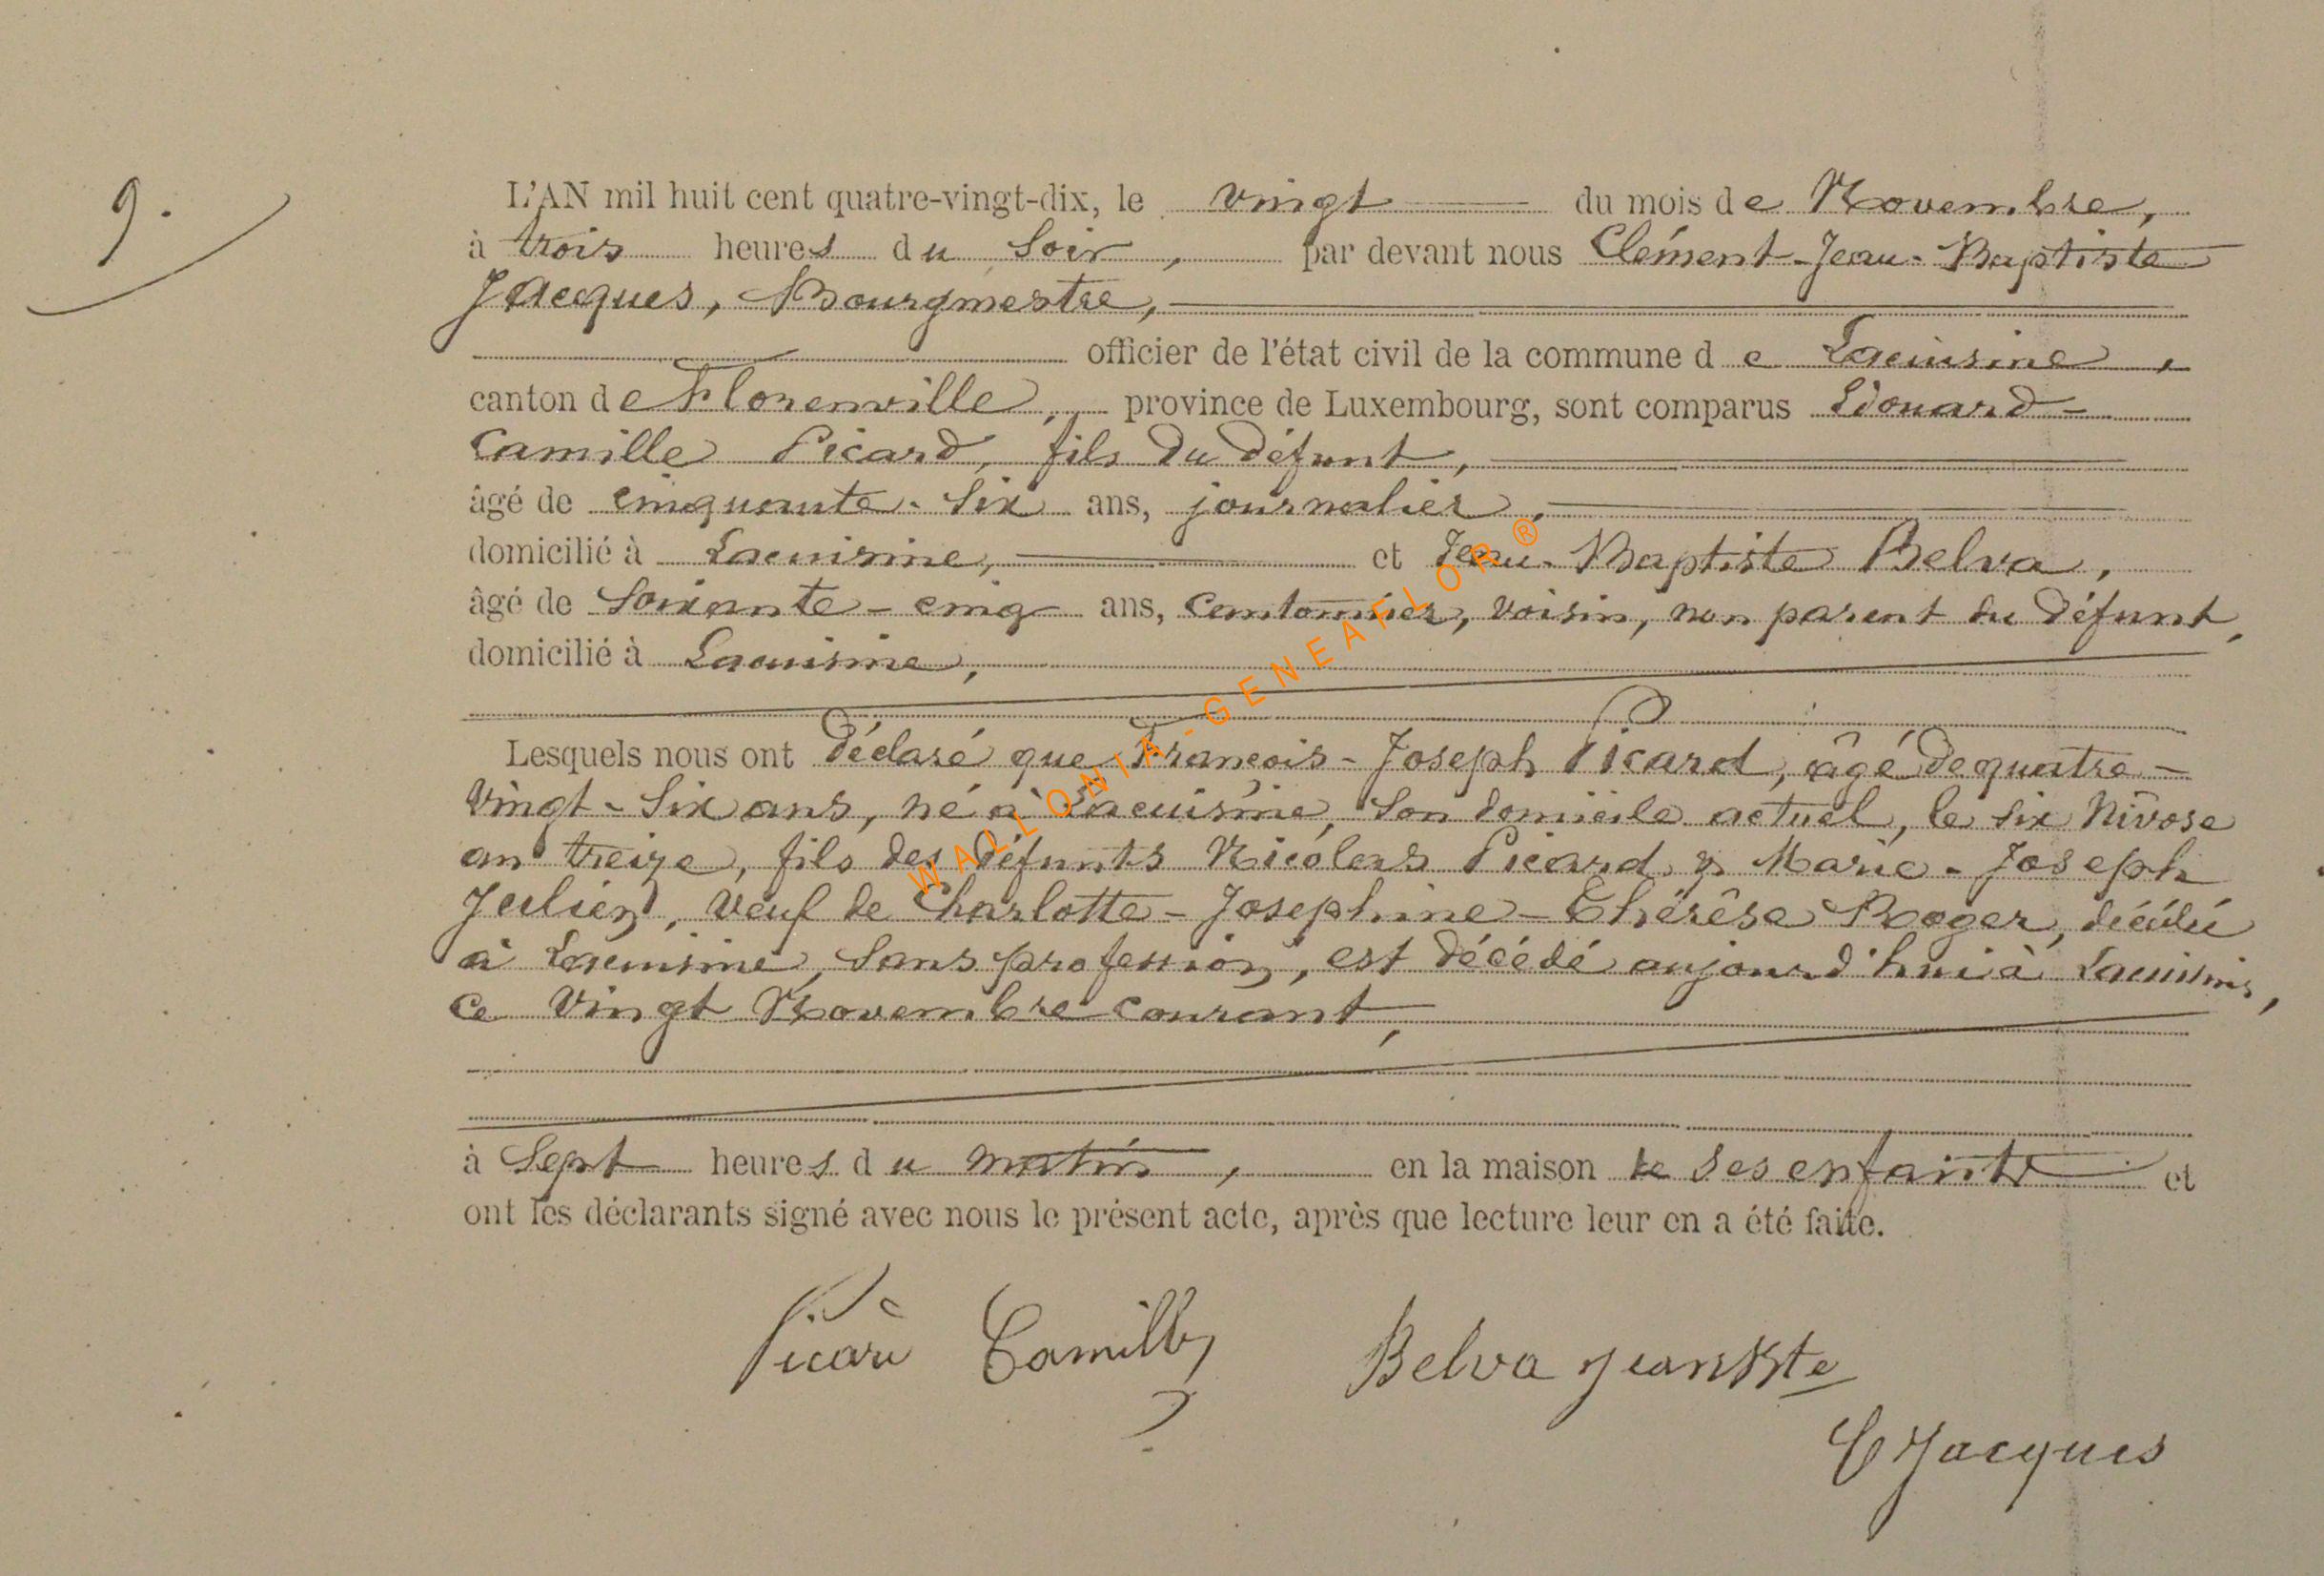 9.
L'AN mil huit cent quatre-vingt-dix, le vingt du mois de Novembre,
à trois heures du soir, par devant nous Clément-Jean-Baptiste
Jacques, Bourgmestre,
officier de l'état civil de la commune de Lacuisine,
canton de Florenville, province de Luxembourg, sont comparus Edouard-
Camille Picard, fils du défunt,
âgé de cinquante-six ans, journalier,
domicilié à Lacuisine, et Jean-Baptiste Belva,
âgé de soixante-cinq ans, cantonnier, voisin, non parent du défunt,
domicilié à Lacuisine,
Lesquels nous ont déclaré que François-Joseph Picard, âgé de quatre-
vingt-six ans, né à Lacuisine, son domicile actuel, le six Nivose
an treize, fils des défunts Nicolas Picard & Marie-Joseph
Julien, veuf de Charlotte-Josephine-Thérèse Roger, décédée
à Lacuisine, sans profession, est décédé aujourd'hui à Lacuisine,
ce vingt Novembre courant,
à sept heures du matin, en la maison de ses enfants et
ont les déclarants signé avec nous le présent acte, après que lecture leur en a été faite.
Picard Camille
Belva Jean Bte
C Jacques
WALLONIA-GENEAFLOR®